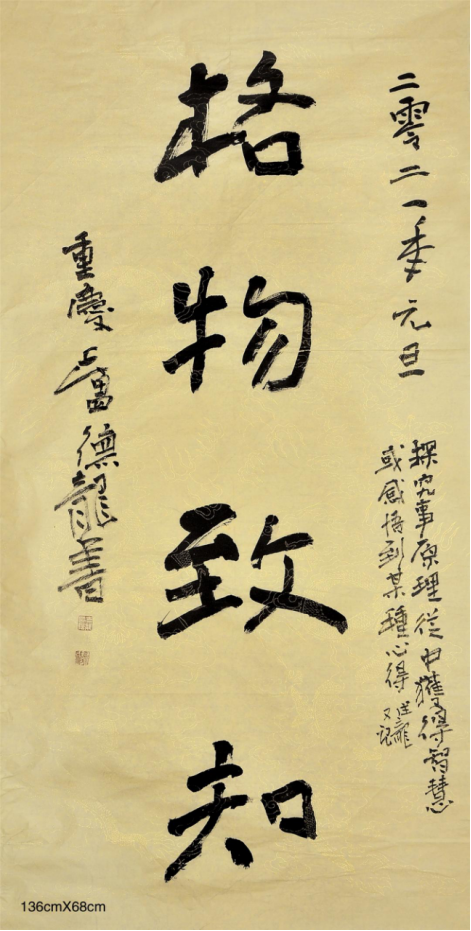 二零二一秊元旦
探究事原理從中獲得智慧
或感悟到某種心得
德龍
又記
格物致知
重慶盧德龍書
136cmX68cm